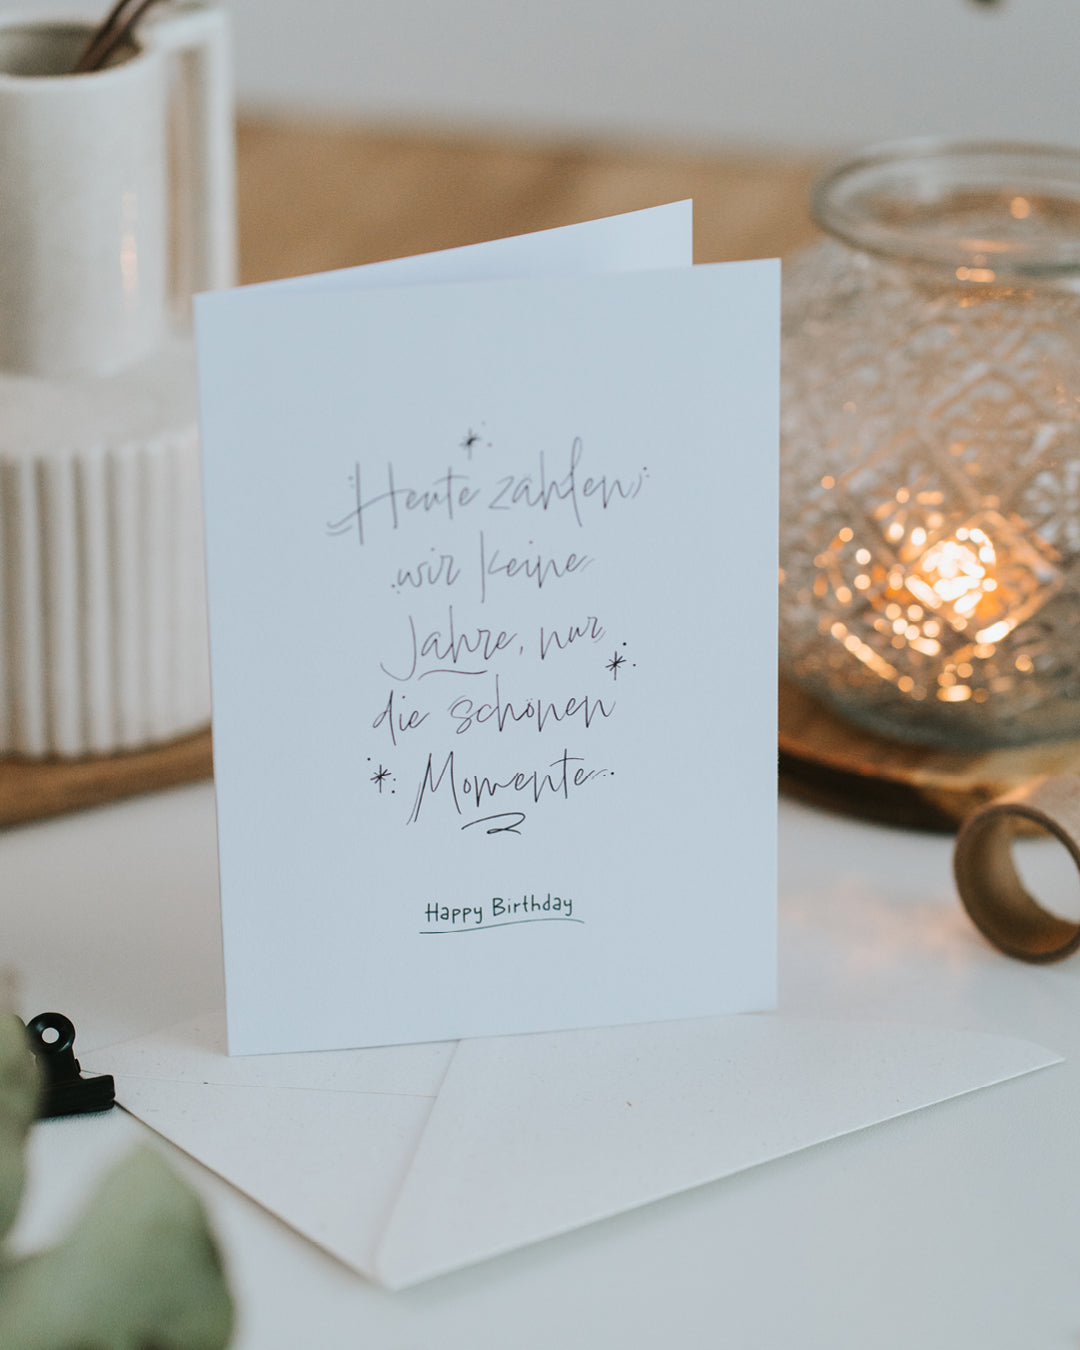 Heute zählen
wir keine
Jahre, nur
die schönen
Momente
Happy Birthday